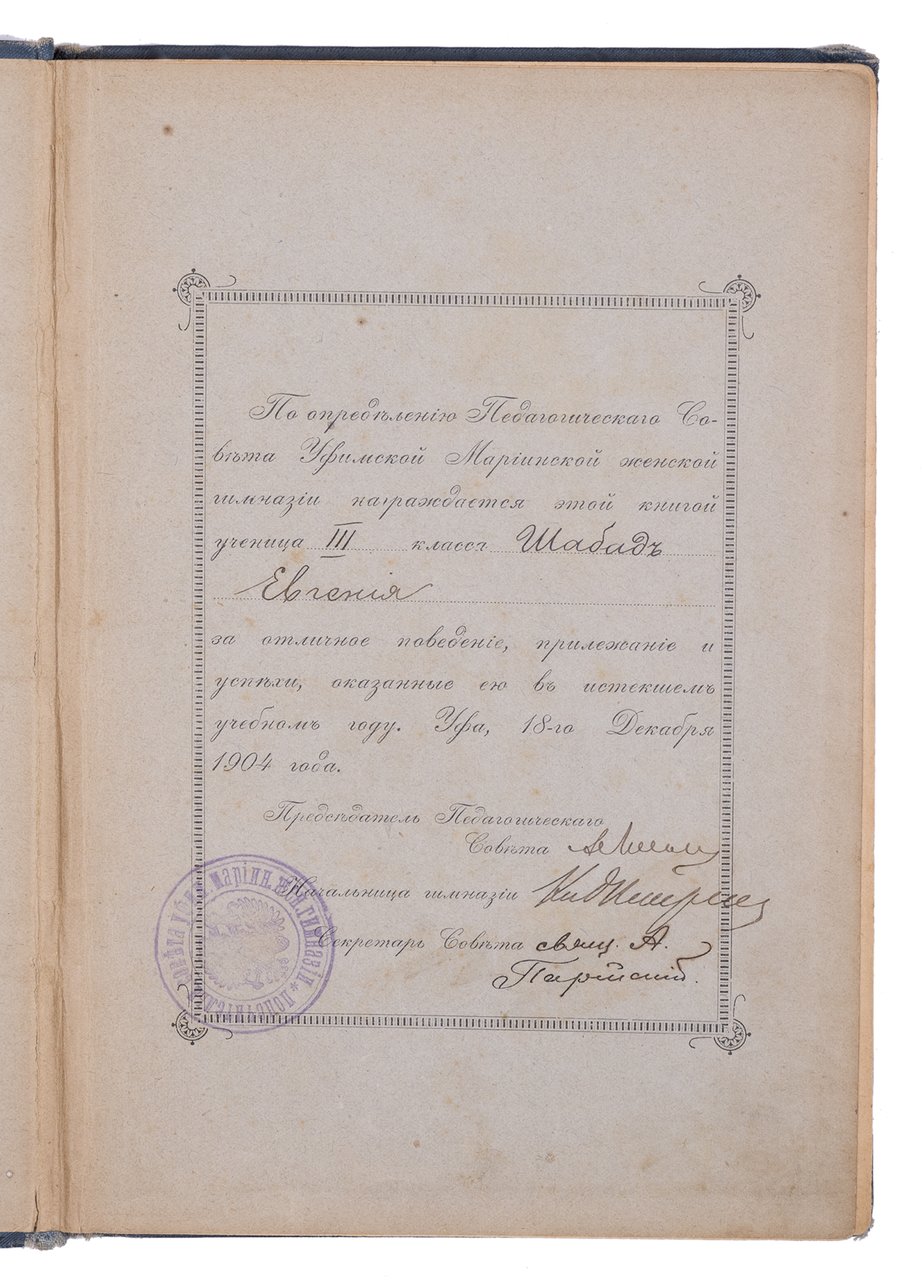 По опредѣленію Педагогическаго Со-
вѣта Уфимской Маріинской женской
гимназіи награждается этой книгой
ученица III класса Шабадъ
Евгенія
за отличное поведеніе, прилежаніе и
успѣхи, оказанные ею въ истекшемъ
учебномъ году. Уфа, 18-го Декабря
1904 года.
Предсѣдатель Педагогическаго
Совѣта
Начальница гимназіи
Секретарь Совѣта свящ. А.
Парійскій.
Маріин. Жен. Гимназіи * Попечител